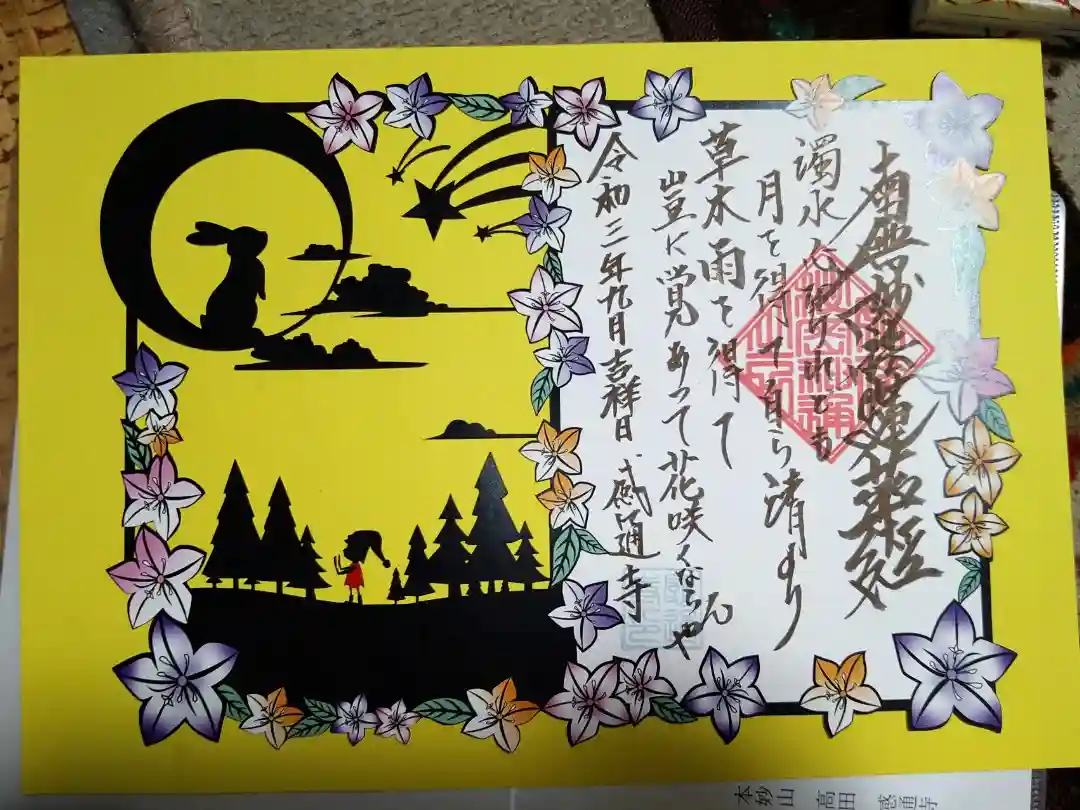 南無妙法蓮華経
濁水心なけれども
月を得て自ら清めり
草木雨を得て
豈に覚あって花咲くならんや
令和三年九月吉祥日 感通寺
本妙山
高田
感通寺